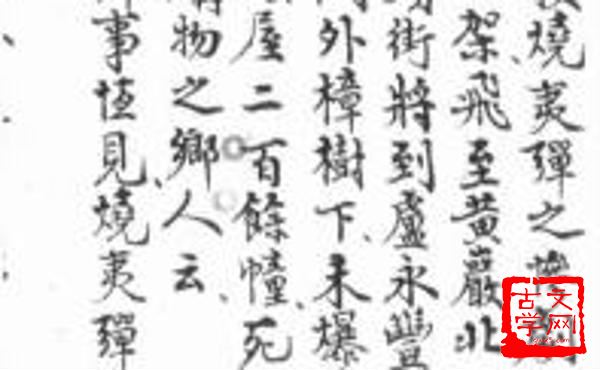 燒夷彈之
架、飛至黃巖北
街將到盧永豐
外樟樹下、未爆
屋二百餘幢、死
物之鄉人云、
事恆見、燒夷彈
古文学网